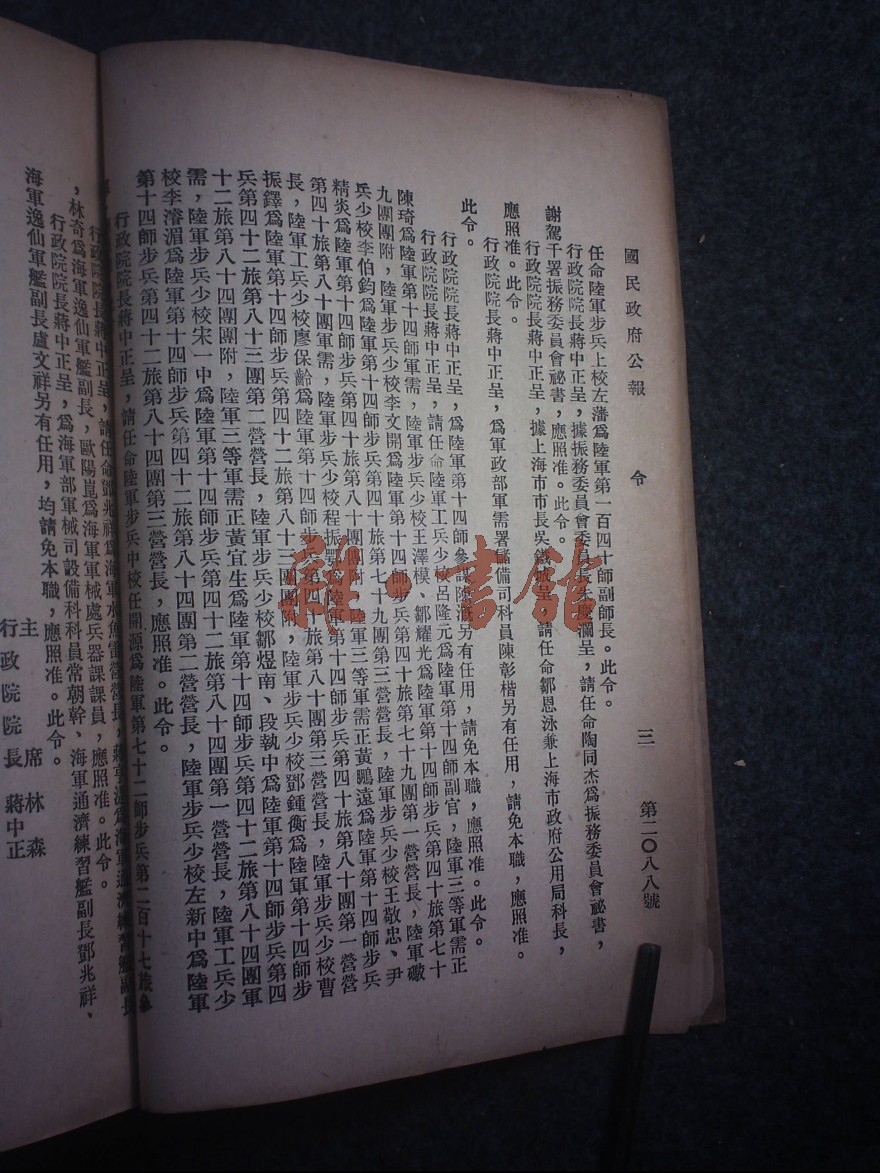 國民政府公報 令 三 第二〇八八號
任命陸軍步兵上校左藩爲陸軍第一百四十師副師長。此令。
行政院院長蔣中正呈，據振務委員會委員長朱慶瀾呈，請任命陶同杰爲振務委員會祕書，
謝駕千署振務委員會祕書，應照准。此令。
行政院院長蔣中正呈，據上海市市長吳鐵城呈，請任命鄒恩泳兼上海市政府公用局科長，
應照准。此令。
行政院院長蔣中正呈，爲軍政部軍需署儲備司科員陳彰楷另有任用，請免本職，應照准。
此令。
行政院院長蔣中正呈，爲陸軍第十四師參謀陳 另有任用，請免本職，應照准。此令。
行政院院長蔣中正呈，請任命陸軍工兵少校呂隆元爲陸軍第十四師副官，陸軍三等軍需正
陳琦爲陸軍第十四師軍需，陸軍步兵少校王澤模、鄒耀光爲陸軍第十四師步兵第四十旅第七十
九團團附，陸軍步兵少校李文開爲陸軍第十四師步兵第四十旅第七十九團第一營營長，陸軍礮
兵少校李伯鈞爲陸軍第十四師步兵第四十旅第七十九團第三營營長，陸軍步兵少校王敬忠、尹
精炎爲陸軍第十四師步兵第四十旅第八十團團附，陸軍三等軍需正黃鵬遠爲陸軍第十四師步兵
第四十旅第八十團軍需，陸軍步兵少校程振 爲陸軍第十四師步兵第四十旅第八十團第一營營
長，陸軍工兵少校廖保齡爲陸軍第十四師步兵第四十旅第八十團第三營營長，陸軍步兵少校曹
振鐸爲陸軍第十四師步兵第四十二旅第八十三團團附，陸軍步兵少校鄧鍾衡爲陸軍第十四師步
兵第四十二旅第八十三團第二營營長，陸軍步兵少校鄒煜南、段執中爲陸軍第十四師步兵第四
十二旅第八十四團團附，陸軍三等軍需正黃宜生爲陸軍第十四師步兵第四十二旅第八十四團軍
需，陸軍步兵少校宋一中爲陸軍第十四師步兵第四十二旅第八十四團第一營營長，陸軍工兵少
校李濬湄爲陸軍第十四師步兵第四十二旅第八十四團第二營營長，陸軍步兵少校左新中爲陸軍
第十四師步兵第四十二旅第八十四團第三營營長，應照准。此令。
行政院院長蔣中正呈，請任命陸軍步兵中校任開源爲陸軍第七十二師步兵第二百十七旅參
行政院院長蔣中正呈，請任命鄧兆祥爲海軍水魚雷營營長， 爲海軍通濟練習艦副長
，林奇爲海軍逸仙軍艦副長，歐陽崑爲海軍軍械處兵器課課員，應照准。此令。
行政院院長蔣中正呈，爲海軍部軍械司設備科科員常朝幹、海軍通濟練習艦副長鄧兆祥、
海軍逸仙軍艦副長盧文祥另有任用，均請免本職，應照准。此令。
主席 林森
行政院院長 蔣中正
雜·書館